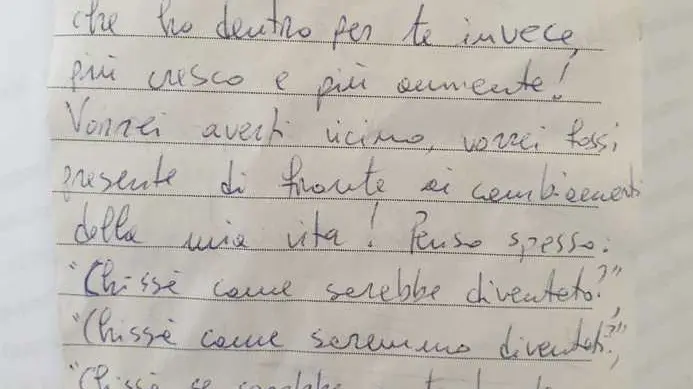 che ho dentro per te invece,
più cresco e più aumenta!
Vorrei averti vicino, vorrei fossi
presente di fronte ai cambiamenti
della mia vita! Penso spesso:
"Chissà come sarebbe diventato?",
"Chissà come saremmo diventati?",
"Chissà se sarebbe